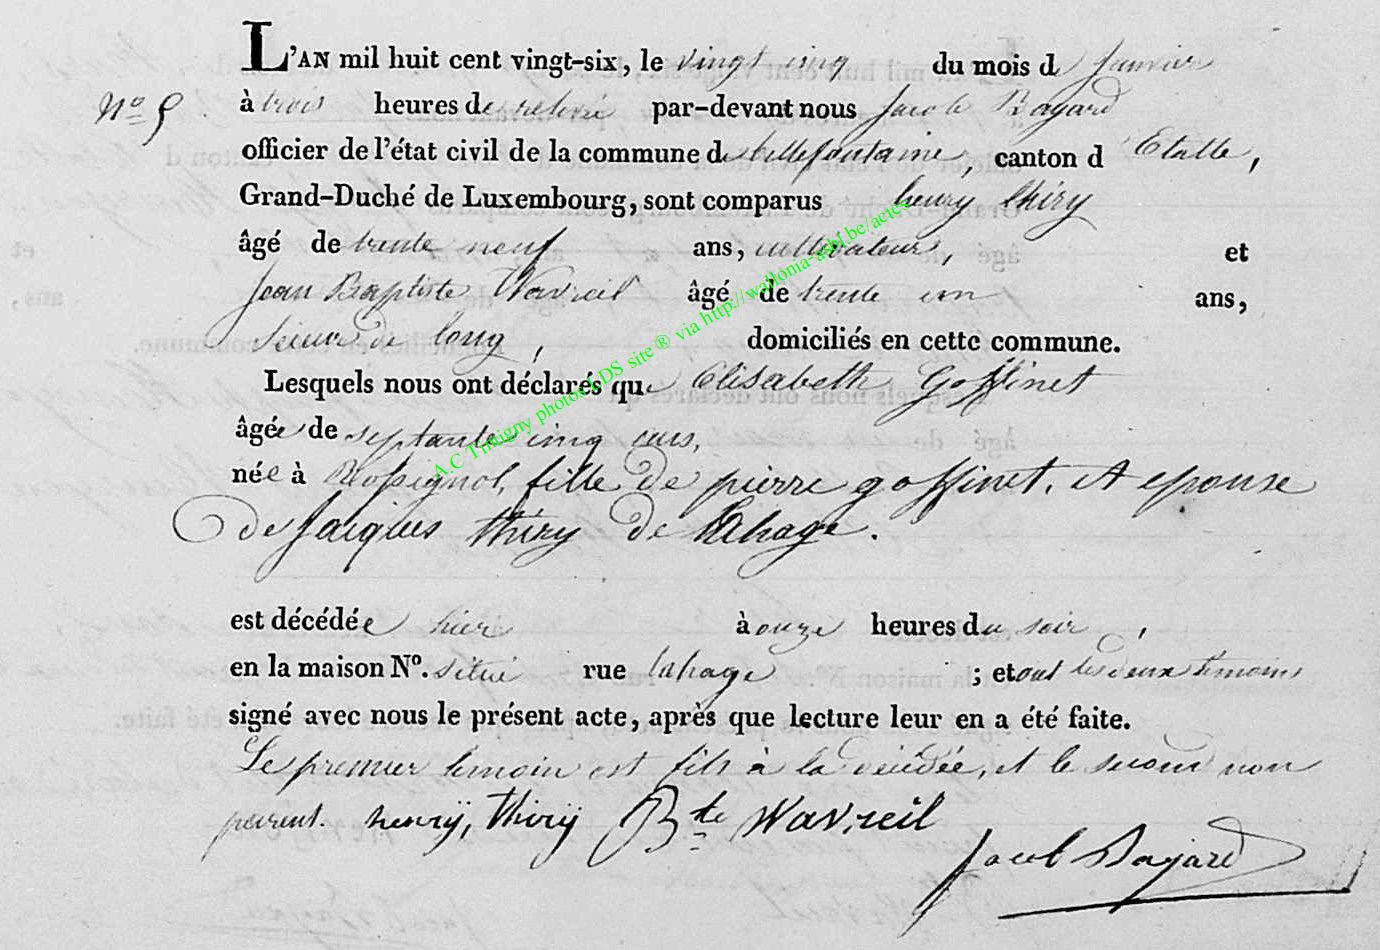 L'AN mil huit cent vingt-six, le vingt cinq du mois de Janvier
N° 5. à trois heures de relevée par-devant nous Jacob Bayard
officier de l'état civil de la commune de bellefontaine, canton d'Etalle,
Grand-Duché de Luxembourg, sont comparus henry thiry
âgé de trente neuf ans, cultivateur, et
Jean Baptiste Wavreil âgé de trente un ans,
sieur de long, domiciliés en cette commune.
Lesquels nous ont déclarés que Elisabeth Goffinet
âgée de septante cinq ans,
née à Rossignol, fille de pierre goffinet, et epouse
de Jacques thiry de lahage.
est décédée hier à onze heures du soir,
en la maison N°. situé rue lahage ; et ont les deux temoins
signé avec nous le présent acte, après que lecture leur en a été faite.
Le premier temoin est fils à la décédée, et le second non
parent. henrÿ, thirÿ Bte Wavreil
Jacob Bayard
A.C Tintigny photos LDS site ® via http://wallonia-asbl.be/actes